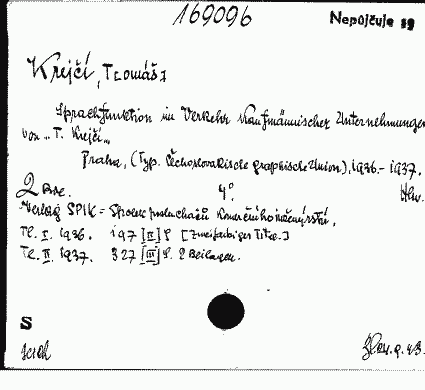 169096
Nepůjčuje se
Krejčí, Tomáš
Sprachfunktion im Verkehr kaufmännischer Unternehmungen
von "T. Krejčí"
Praha, (Typ. Čechoslovakische graphische Union), 1936.-1937.
2 Bde. 4°. Hlw.
Verlag SPIK = Spolek posluchačů Komerčního inženýrství.
Tl. I. 1936. 197 [II] S [Zweifarbiger Titel.]
Tl. II. 1937. 327 [III] S. 2 Beilagen.
S